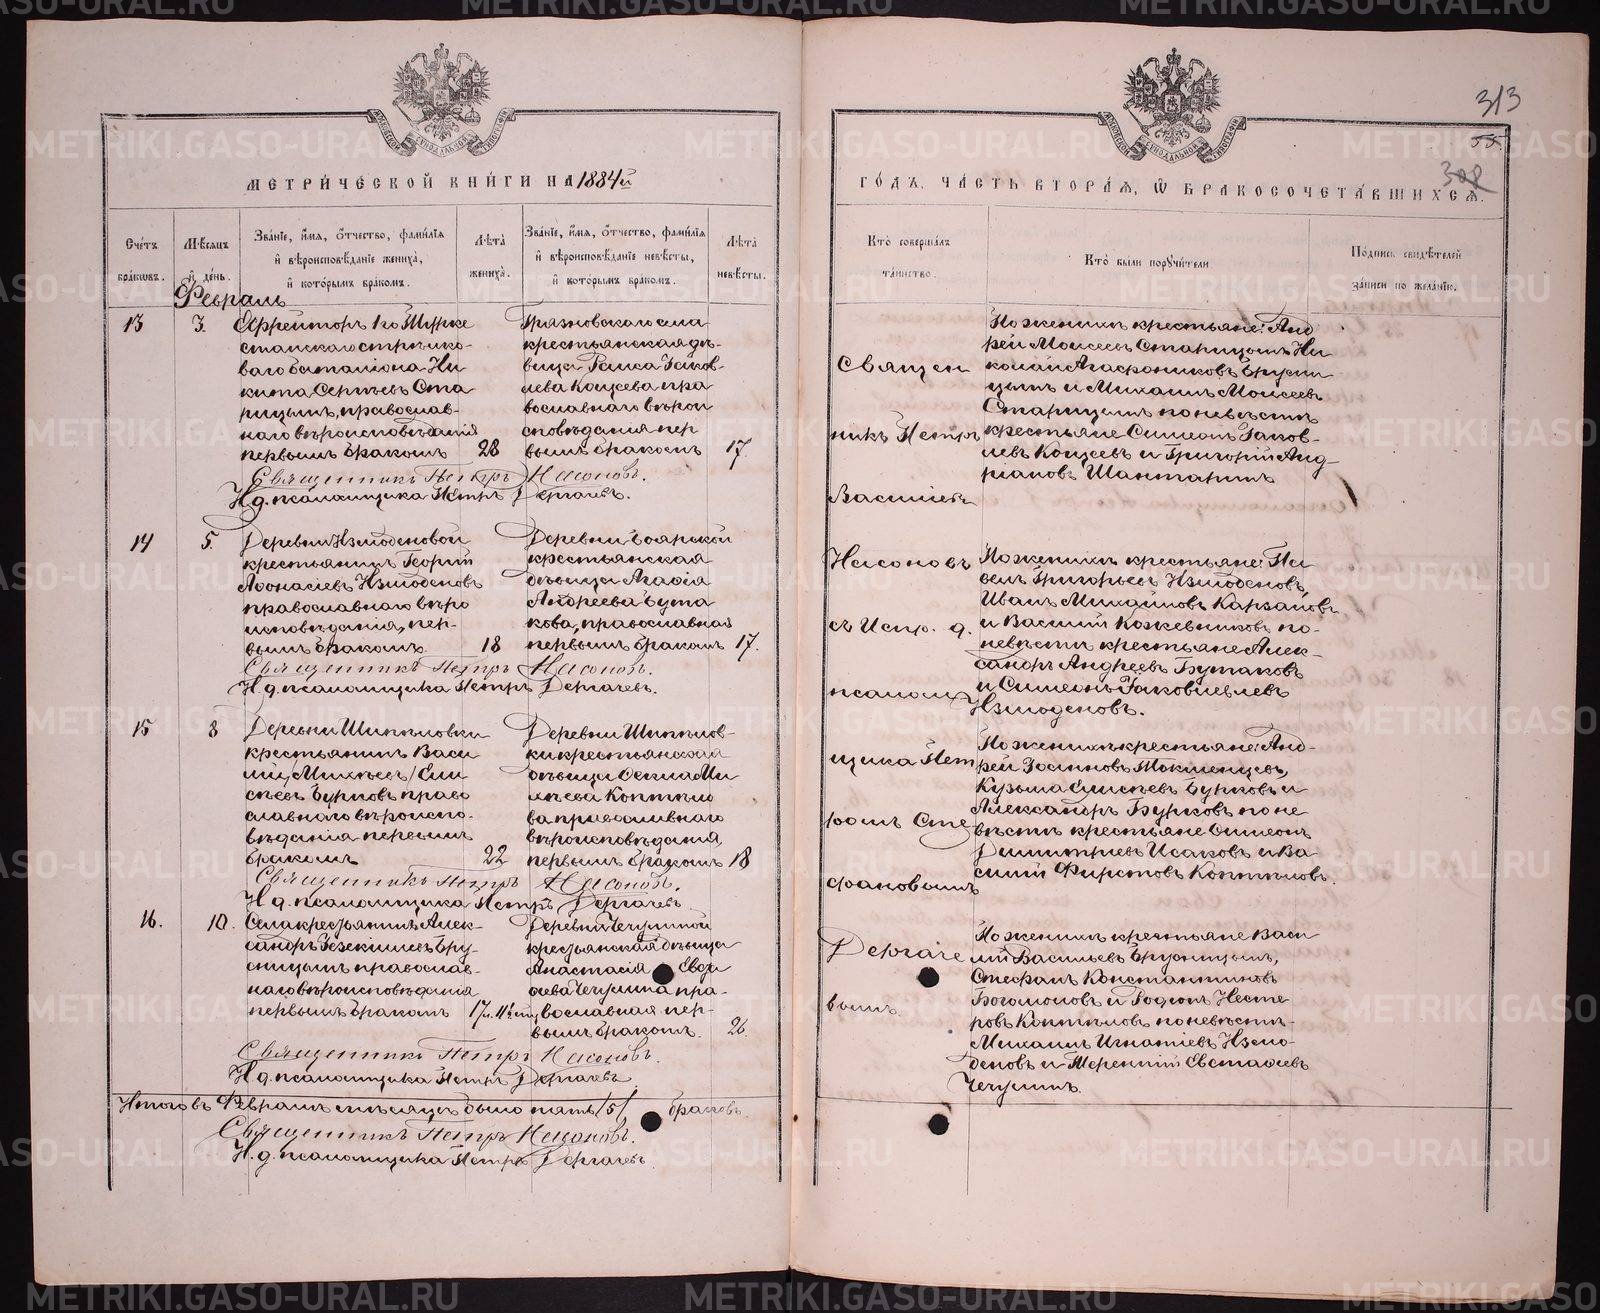 313
55
308
МЕТРИ́ЧЕСКОЙ КНИ́ГИ НА 1884й
ГО́ДЪ, ЧА́СТЬ ВТОРА́Я, Ѡ БРАКОСОЧЕТА́ВШИХСЯ.
Сче́тъ бра́ковъ.
Мѣ́сяцъ и де́нь.
Зва́нїе, и́мя, о́тчество, фами́лїя и вѣроисповѣ́данїе жениха̀, и кото́рымъ бра́комъ.
Лѣ́та жениха̀.
Зва́нїе, и́мя, о́тчество, фами́лїя и вѣроисповѣ́данїе невѣ́сты, и кото́рымъ бра́комъ.
Лѣ́та невѣ́сты.
Кто̀ соверша́лъ та́инство.
Кто̀ бы́ли поручи́тели
По́дпись свидѣ́телей за́писи по жела́нїю.
Февраль
13
3.
Ефрейторъ 1го Турке
станскаго стрѣлко-
ваго баталіона Ни
кита Сергѣевъ Ста
рицынъ, православ-
наго вѣроисповѣданія
первымъ бракомъ
28
Грязновскаго села
крестьянская дѣ-
вица Раиса Іаков-
лева Кощеева пра
вославнаго вѣрои
сповѣданія пер
вымъ бракомъ
17.
Священникъ Петръ Насоновъ.
И д. псаломщика Петръ Дергачевъ.
14
5.
Деревни Измоденовой
крестьянинъ Георгій
Аѳонасіевъ Измоденовъ
православнаго вѣро
исповѣданія, пер-
вымъ бракомъ
18
Деревни Боярской
крестьянская
дѣвица Агафія
Андреева Бута
кова, православная
первымъ бракомъ
17.
Священникъ Петръ Насоновъ.
И д. псаломщика Петръ Дергачевъ.
15
8
Деревни Шипѣловки
крестьянинъ Васи
лій (Михѣевъ) Ели
сѣевъ Бурковъ право
славнаго вѣроиспо-
вѣданія первымъ
бракомъ
22
Деревни Шипѣлов-
ки крестьянская
дѣвица Ми
хѣева Коптѣло
ва православнаго
вѣроисповѣданія
первымъ бракомъ
18
Священникъ Петръ Насоновъ.
И д. псаломщика Петръ Дергачевъ.
16.
10.
Села крестьянинъ Алек-
сандръ Іезекіилевъ Бру-
сницынъ православ-
наго вѣроисповѣданія
первымъ бракомъ
Деревни Чечулиной
крестьянская дѣвица
Анастасія Евдо
Чечулина пра-
вославная пер-
вымъ бракомъ.
26.
Священникъ Петръ Насоновъ.
И д. псаломщика Петръ Дергачевъ
Итого въ Февралѣ мѣсяцѣ было пять /5/ браковъ.
Священникъ Петръ Насоновъ.
И. д. псаломщика Петръ Дергачевъ
Священ
никъ Петръ
Васильевъ
Насоновъ
съ Испр. д.
псалом
щика Пет
ромъ Сте
фановымъ
Дергаче
вымъ.
По женихѣ крестьяне: Анд
рей Моисеевъ Старицынъ, Ни
колай Агафониковъ Брусни
цынъ и Михаилъ Моисеевъ
Старицынъ по невѣстѣ
крестьяне Симеонъ Іаков-
левъ Кощеевъ и Григорій Анд
ріановъ Шантаринъ
По женихѣ крестьяне: Па
велъ Григорьевъ Измоденовъ,
Иванъ Михайловъ
и Василій Кожевниковъ по
невѣстѣ крестьяне Алек-
сандръ Андреевъ Бутаковъ
и Симеонъ Іаковлевъ
Измоденовъ.
По женихѣ крестьяне: Анд-
рей Токманцевъ,
Кузьма Елисѣевъ Бурковъ и
Александръ Бурковъ по не
вѣстѣ крестьяне Симеонъ
Димитріевъ Исаковъ и Ва
силій Фирстовъ Коптѣловъ.
По женихѣ крестьяне Васи
лій Васильевъ Брусницынъ,
Стефанъ Константиновъ
Богомоловъ и Родіонъ Несте
ровъ Коптѣловъ по невѣстѣ-
Михаилъ Игнатіевъ Измо-
деновъ и Терентій Евстафіевъ
Чечулинъ.